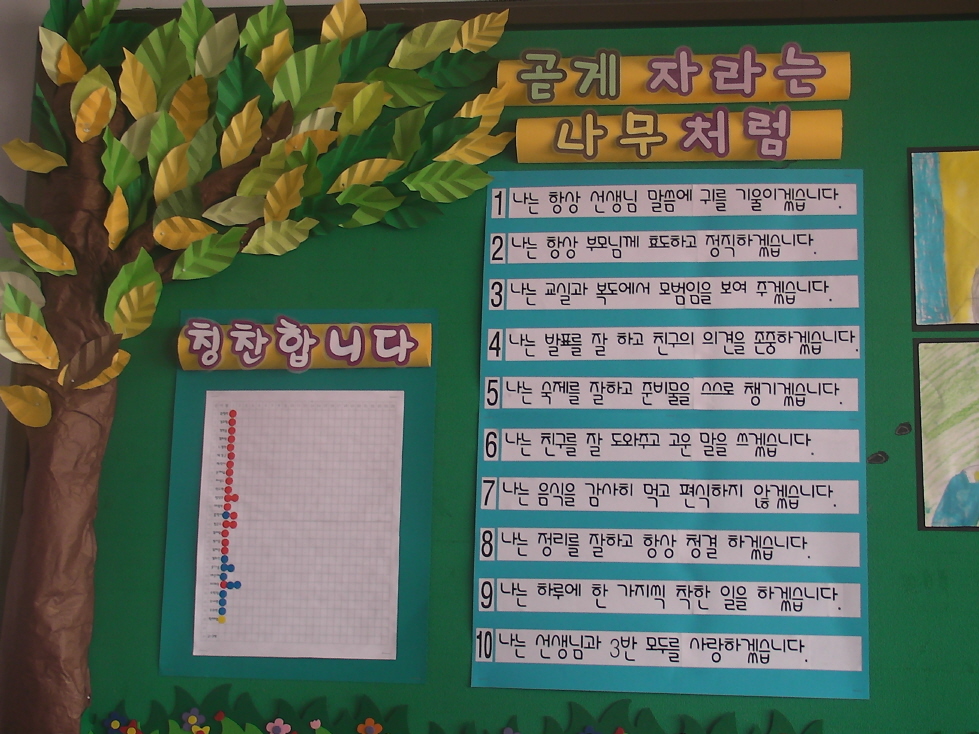 곧게 자라는
나무처럼
1 나는 항상 선생님 말씀에 귀를 기울이겠습니다.
2 나는 항상 부모님께 효도하고 정직하겠습니다.
3 나는 교실과 복도에서 모범임을 보여 주겠습니다.
4 나는 발표를 잘 하고 친구의 의견을 존중하겠습니다.
5 나는 숙제를 잘하고 준비물을 스스로 챙기겠습니다.
6 나는 친구를 잘 도와주고 고운 말을 쓰겠습니다.
7 나는 음식을 감사히 먹고 편식하지 않겠습니다.
8 나는 정리를 잘하고 항상 청결 하겠습니다.
9 나는 하루에 한 가지씩 착한 일을 하겠습니다.
10 나는 선생님과 3반 모두를 사랑하겠습니다.
칭찬합니다